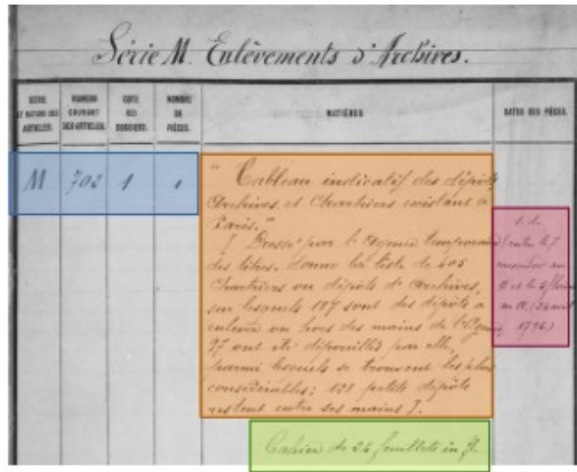 Série M. Enlèvements d'Archives.
SÉRIE
ET NATURE DES
ARTICLES.
NUMÉRO
COURANT
DES ARTICLES.
COTE
DES
DOSSIERS.
NOMBRE
DE
PIÈCES.
MATIÈRES
DATES DES PIÈCES.
M 702 1 1
"Tableau indicatif des dépôts
Archives et Chartriers existant à
Paris."
[Dressé par l'Agence temporaire
des titres. Donne la liste de 405
Chartriers ou dépôts d'Archives,
sur lesquels 187 sont des dépôts à
ou hors des mains de l'Agence,
97 ont été dépouillés par elle,
parmi lesquels se trouvent les plus
considérables; 121 petits dépôts
restent entre ses mains].
s. d.
(entre le 7
messidor an
II et le 5
an IV
1796)
Cahier de 24 feuillets in f°.